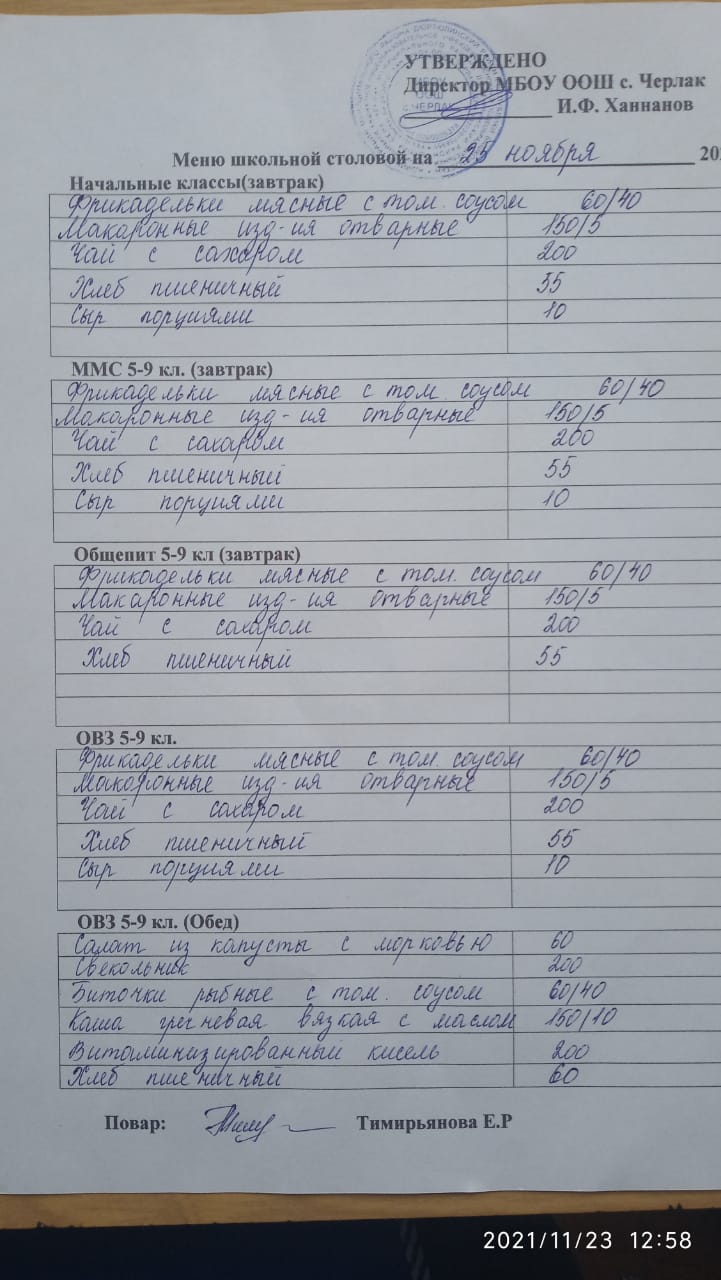 УТВЕРЖДЕНО
Директор МБОУ ООШ с. Черлак
И.Ф. Ханнанов
МБОУ
ООШ
с. ЧЕРЛАК
Меню школьной столовой на 25 ноября 202
Начальные классы(завтрак)
Фрикадельки мясные с том. соусом 60/40
Макаронные изд-ия отварные 150/5
Чай с сахаром 200
Хлеб пшеничный 35
Сыр порциями 10
ММС 5-9 кл. (завтрак)
Фрикадельки мясные с том. соусом 60/40
Макаронные изд-ия отварные 150/5
Чай с сахаром 200
Хлеб пшеничный 55
Сыр порциями 10
Общепит 5-9 кл (завтрак)
Фрикадельки мясные с том. соусом 60/40
Макаронные изд-ия отварные 150/5
Чай с сахаром 200
Хлеб пшеничный 55
ОВЗ 5-9 кл.
Фрикадельки мясные с том. соусом 60/40
Макаронные изд-ия отварные 150/5
Чай с сахаром 200
Хлеб пшеничный 55
Сыр порциями 10
ОВЗ 5-9 кл. (Обед)
Салат из капусты с морковью 60
Свекольник 200
Биточки рыбные с том. соусом 60/40
Каша гречневая вязкая с маслом 150/10
Витаминизированный кисель 200
Хлеб пшеничный 60
Повар: Тимирьянова Е.Р
2021/11/23 12:58